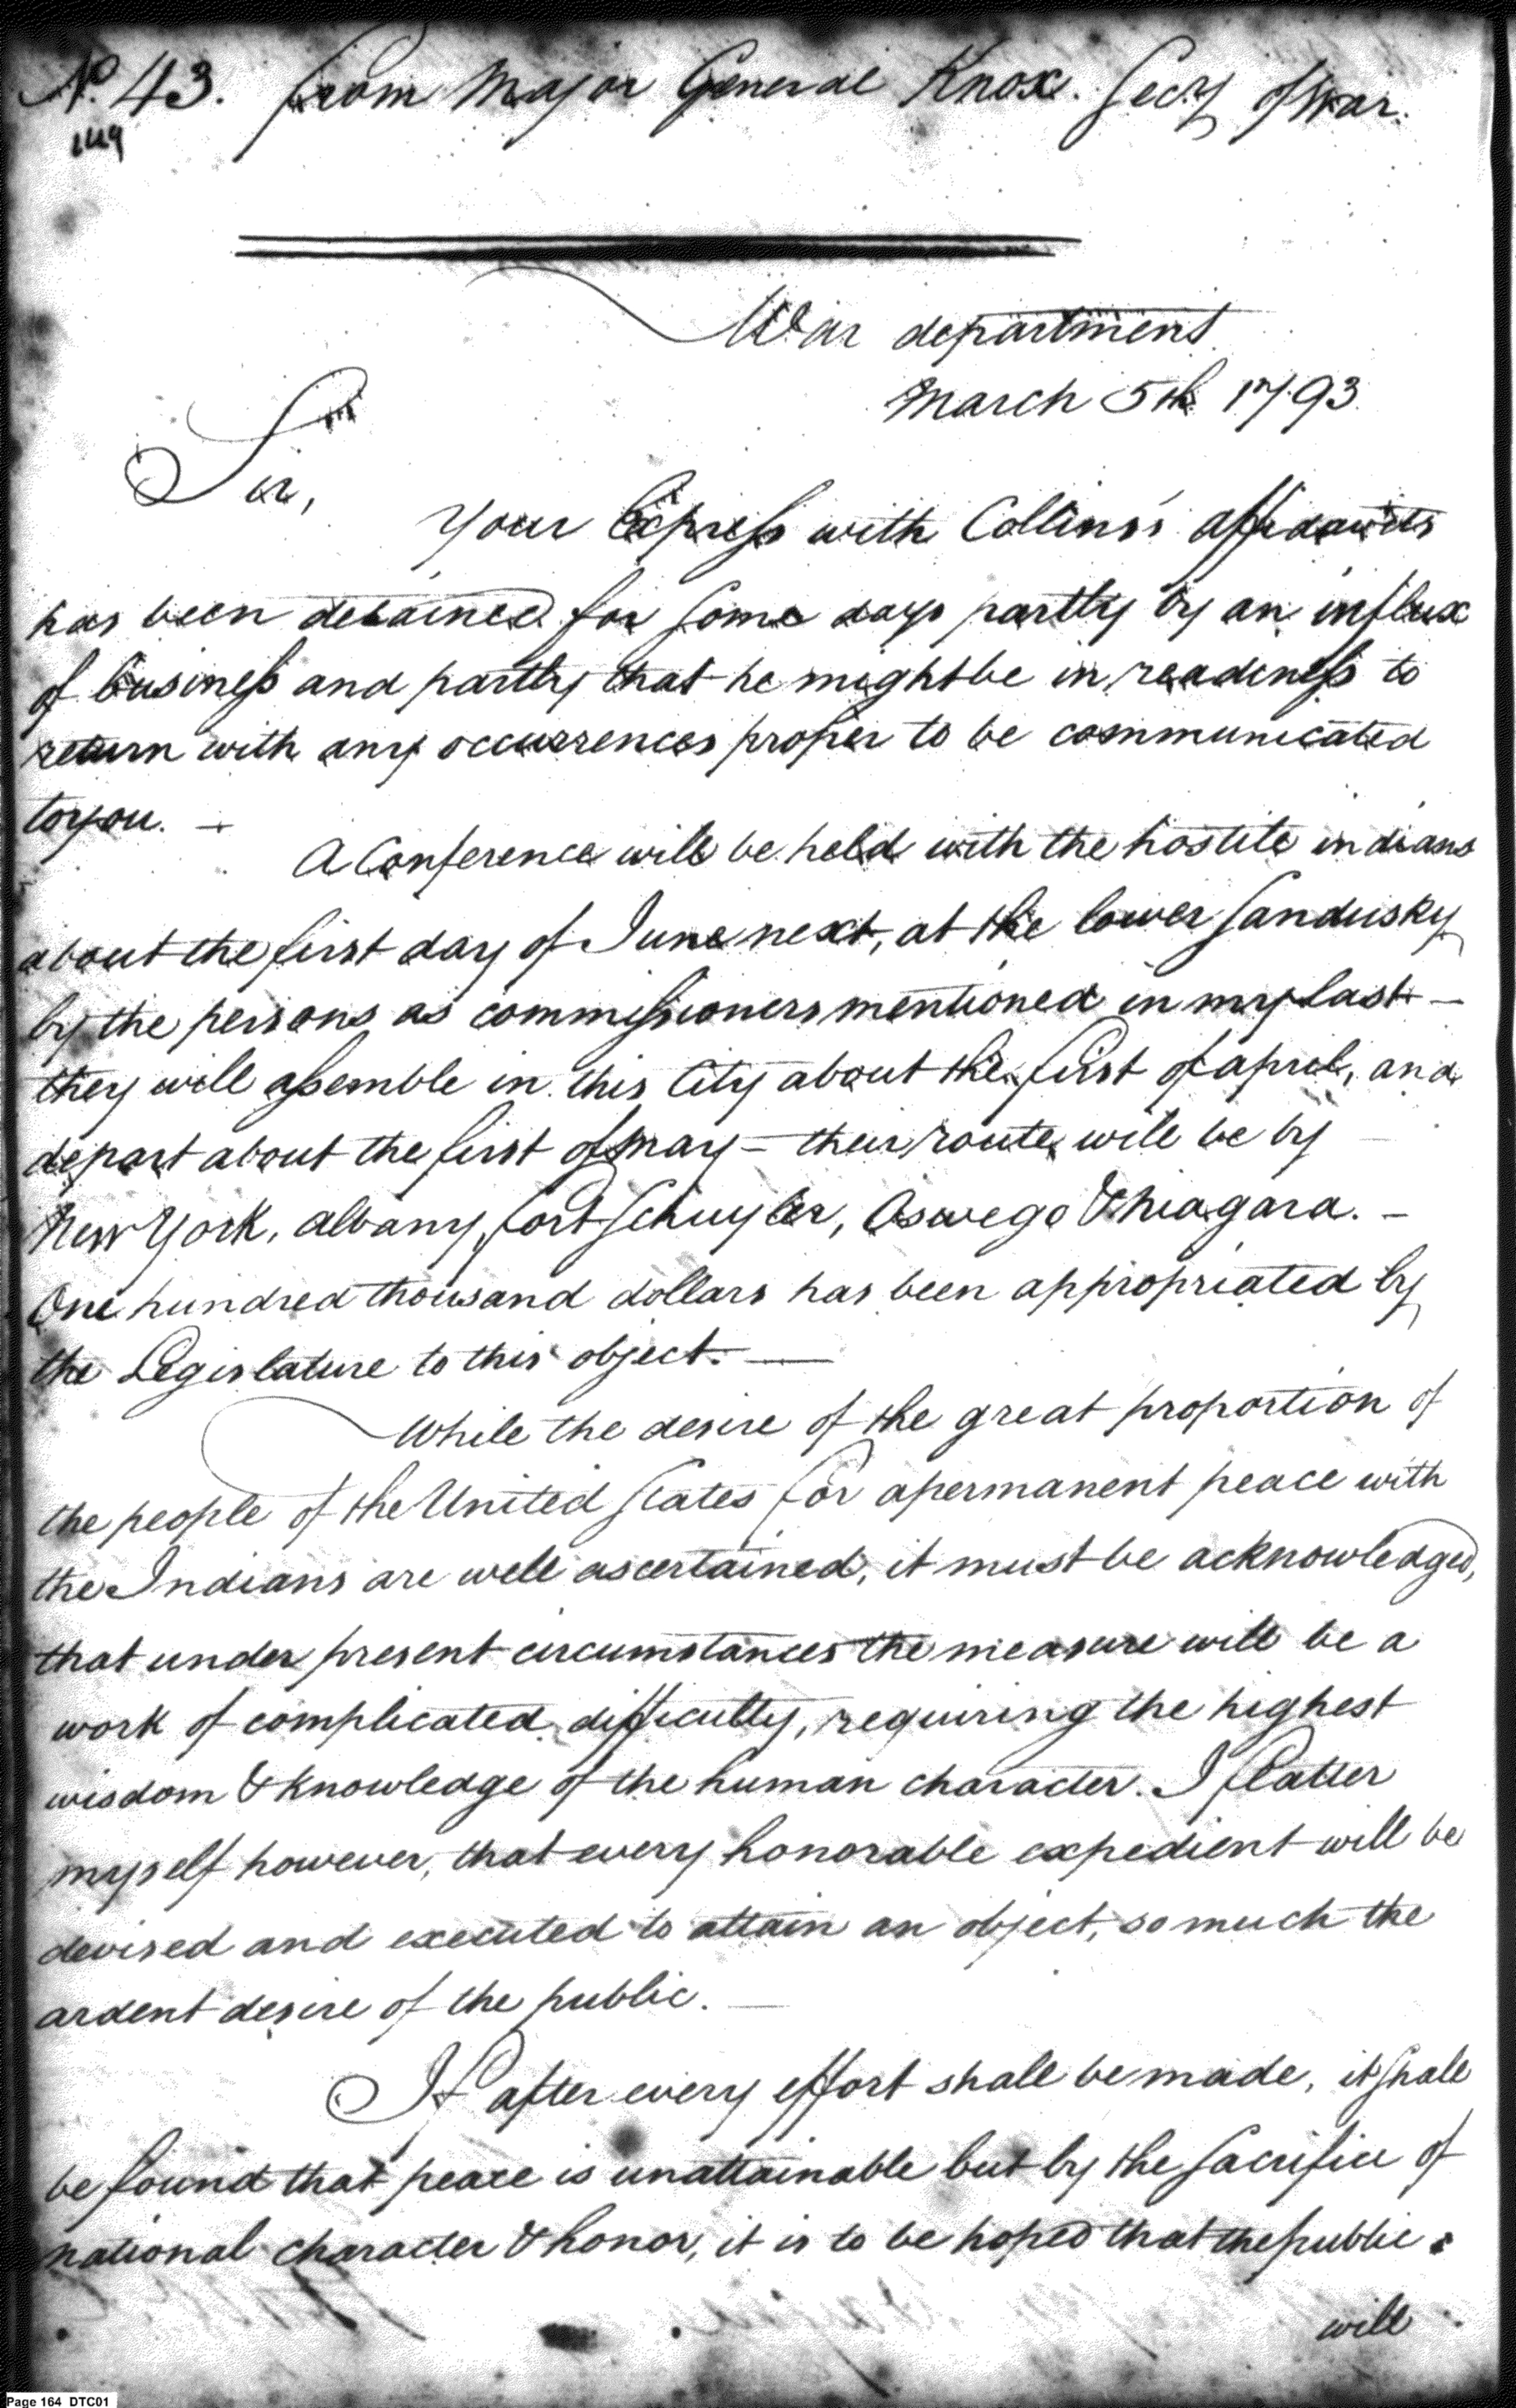 No. 43. From Major General Knox. Secy of War.
149
War department
March 5th 1793
Sir,
Your Express with Collins's affidavits
has been detained for some days partly by an influx
of business and partly that he might be in readiness to
return with any occurrences proper to be communicated
to you. —
A Conference will be held with the hostile indians
about the first day of June next, at the lower Sandusky
by the persons as commissioners mentioned in my last —
they will assemble in this City about the first of april, and
depart about the first of may — their route will be by
New York, albany, fort Schuyler, Oswego & Niagara. —
One hundred thousand dollars has been appropriated by
the Legislature to this object. —
While the desire of the great proportion of
the people of the United States for a permanent peace with
the Indians are well ascertained, it must be acknowledged,
that under present circumstances the measure will be a
work of complicated difficulty, requiring the highest
wisdom & knowledge of the human character. I flatter
myself however, that every honorable expedient will be
devised and executed to attain an object, so much the
ardent desire of the public. —
If after every effort shall be made, it shall
be found that peace is unattainable but by the sacrifice of
national character & honor, it is to be hoped that the public
will
Page 164 DTC01